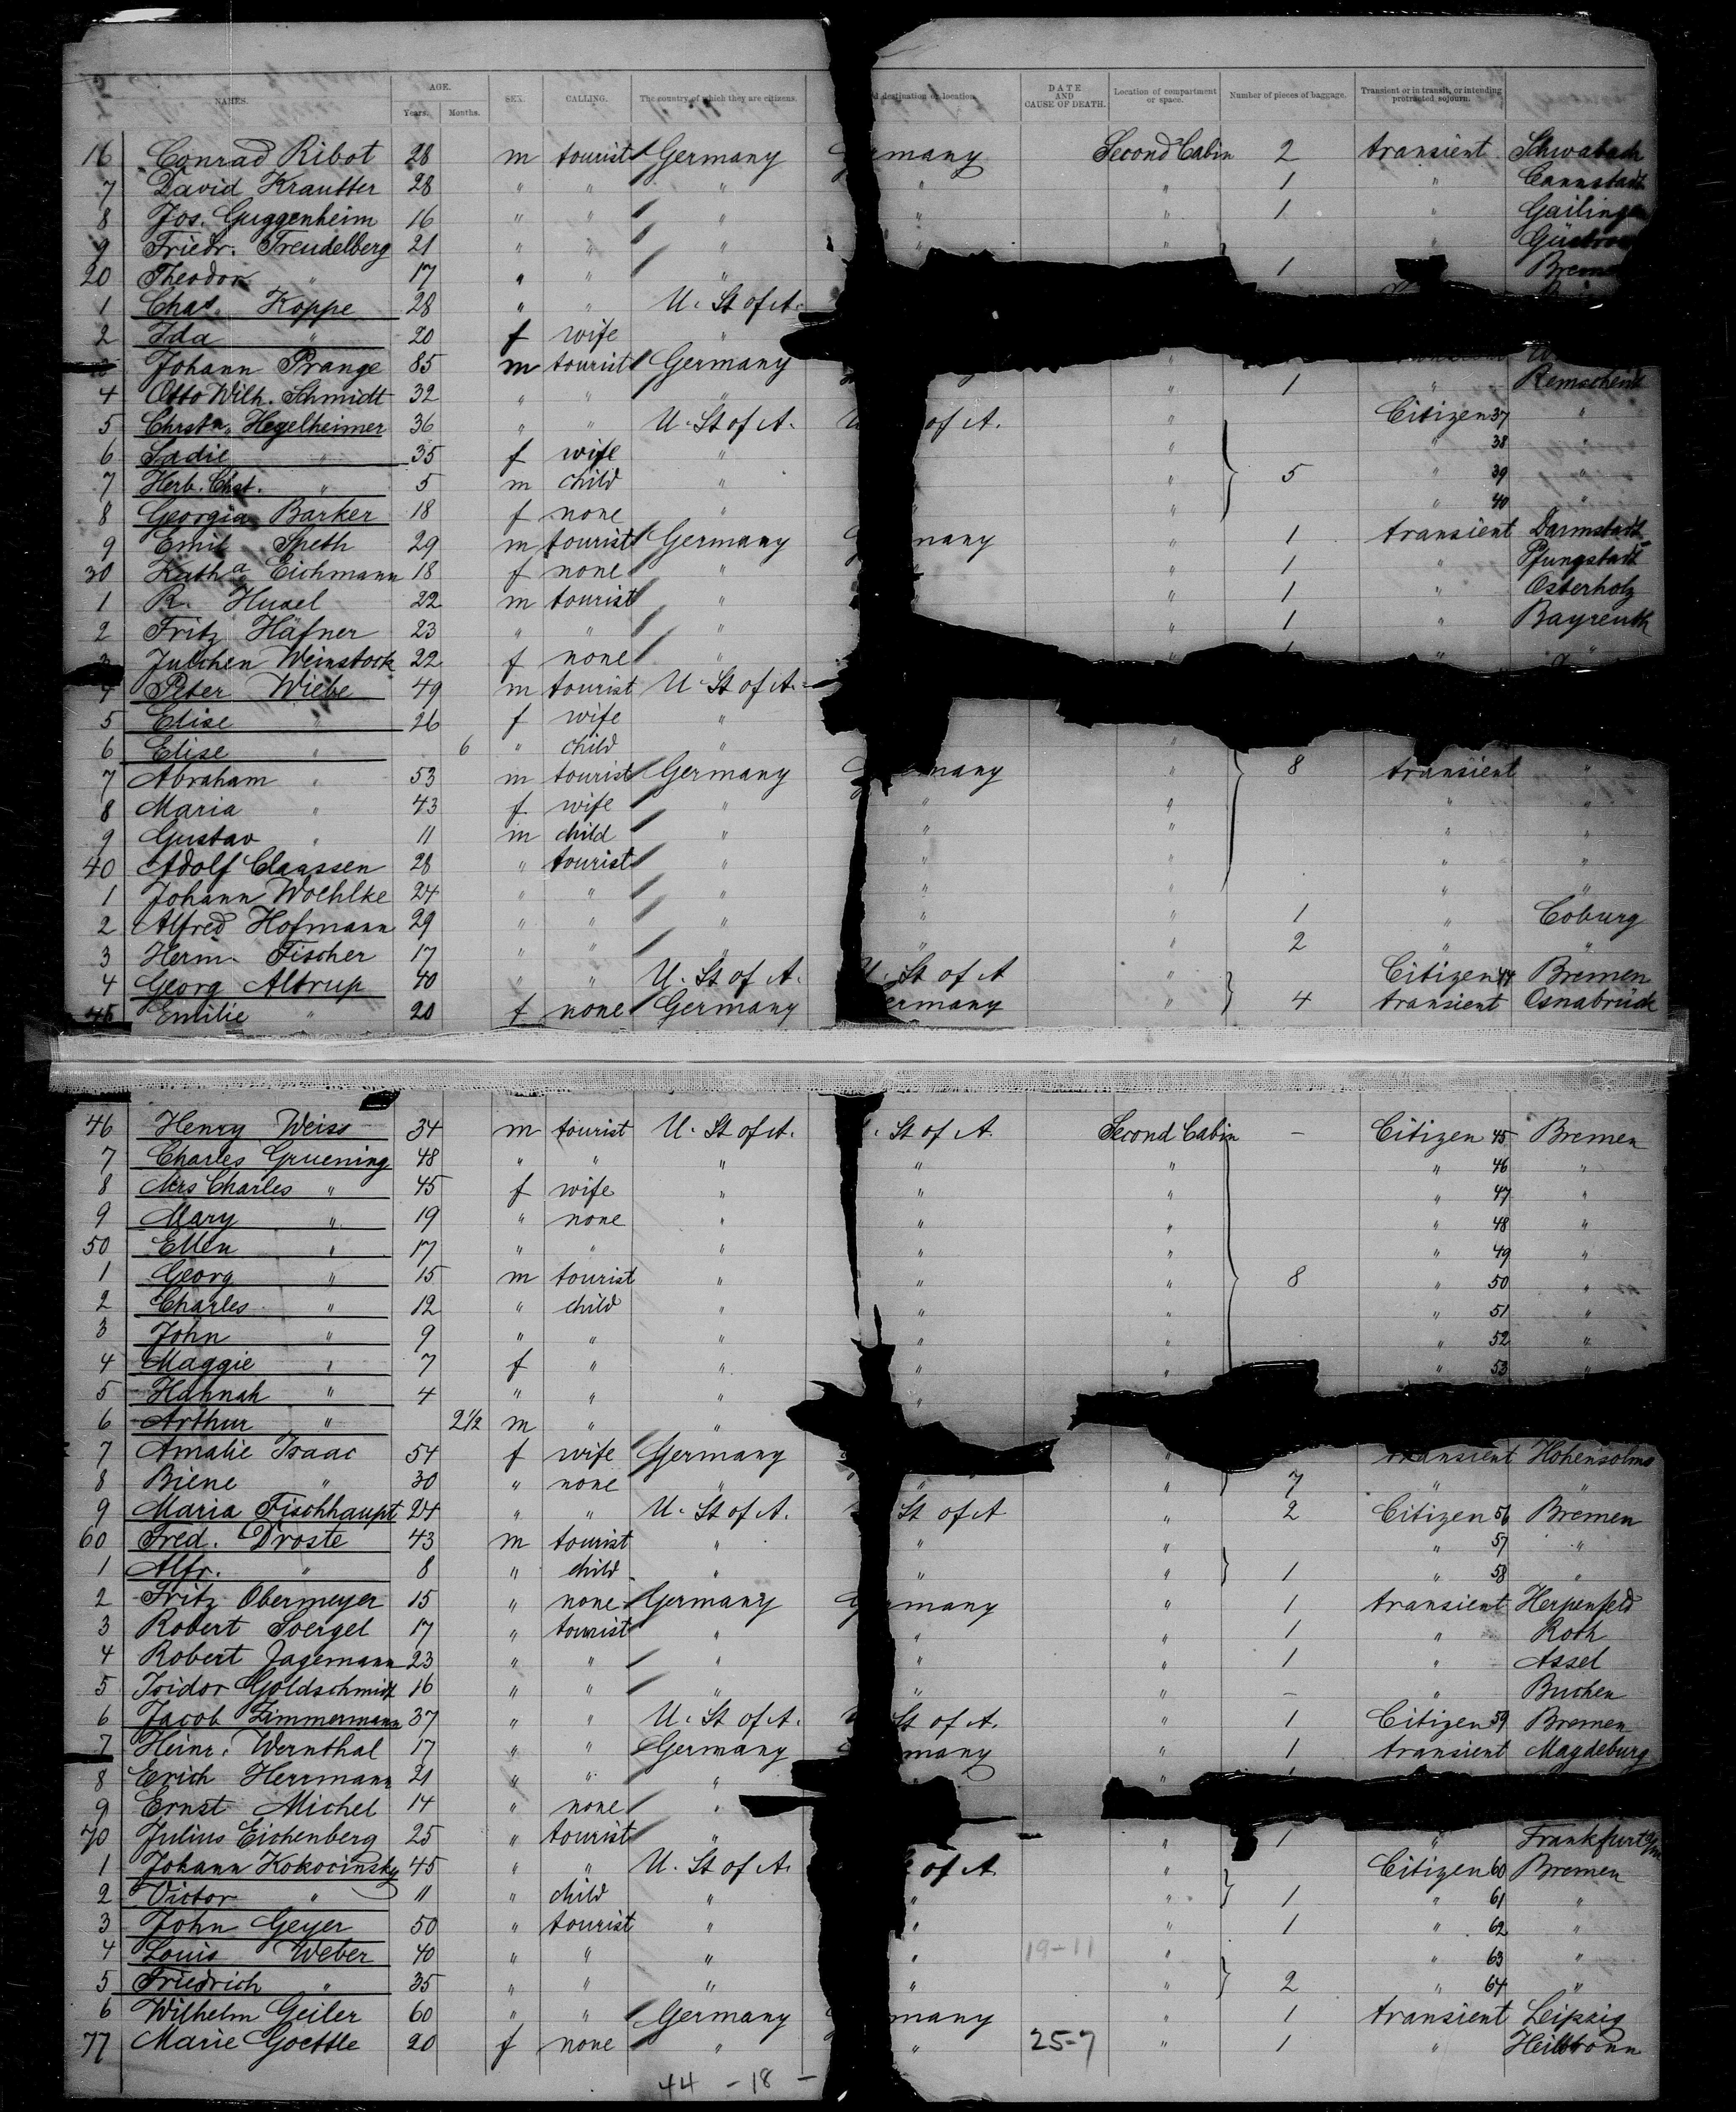 NAMES. AGE. Years. Months. SEX. CALLING. The country of which they are citizens. d destination or location. DATE AND CAUSE OF DEATH. Location of compartment or space. Number of pieces of baggage. Transient or in transit, or intending protracted sojourn.
16 Conrad Ribot 28 m tourist Germany many Second Cabin 2 transient Schwabach
7 David Krautter 28 " " " " " 1 " Cannstadt
8 Jos. Guggenheim 16 " " " " " 1 " Gailingen
9 Friedr. Freudelberg 21 " " " " " "
20 Theodor " 17 " " " 1
1 Chas. Koppe 28 " " U. St of A.
2 Ida " 20 f wife "
Johann Prange 85 m tourist Germany "
4 Otto Wilh. Schmidt 32 " " " " 1 " Remscheid
5 Christn. Hegelheimer 36 " " U. St of A. U of A. " Citizen 37 "
6 Sadie " 35 f wife " " " 38 "
7 Herb. Chst. " 5 m child " " 5 " 39 "
8 Georgia Barker 18 f none " " " 40 "
9 Emil Speth 29 m tourist Germany many " 1 transient Darmstadt
30 Katha. Eichmann 18 f none " " 1 " Pfungstadt
1 R. Husel 22 m tourist " " 1 " Osterholz
2 Fritz Häfner 23 " " " " 1 " Bayreuth
3 Julchen Weinstock 22 f none " " "
4 Peter Wiebe 49 m tourist U. St of A.
5 Elise " 26 f wife "
6 Elise " 6 " child " "
7 Abraham " 53 m tourist Germany many " 8 transient "
8 Maria " 43 f wife " " " " "
9 Gustav " 11 m child " " " " "
40 Adolf Claassen 28 " tourist " " " " "
1 Johann Woehlke 24 " " " " " " "
2 Alfred Hofmann 29 " " " " " 1 " Coburg
3 Herm. Fischer 17 " " " " " 2 " "
4 Georg Altrup 40 " " U. St of A. U. St of A " Citizen 44 Bremen
45 Emilie " 20 f none Germany ermany " 4 transient Osnabrück
46 Henry Weiss 34 m tourist U. St of A. . St of A. Second Cabin — Citizen 45 Bremen
7 Charles Gruening 48 " " " " " " 46 "
8 Mrs Charles " 45 f wife " " " " 47 "
9 Mary " 19 " none " " " " 48 "
50 Ellen " 17 " " " " " " 49 "
1 Georg " 15 m tourist " " " 8 " 50 "
2 Charles " 12 " child " " " " 51 "
3 John " 9 " " " " " " 52 "
4 Maggie " 7 f " " " " " 53 "
5 Hannah " 4 " " " "
6 Arthur " 2½ m " "
7 Amalie Isaac 54 f wife Germany " transient Hohensolms
8 Biene " 30 " none " " " 7 " "
9 Maria Fischhaupt 24 " " U. St of A. St of A " 2 Citizen 56 Bremen
60 Fred. Droste 43 m tourist " " " " 57 "
1 Alfr. " 8 " child " " " 1 " 58 "
2 Fritz Obermeyer 15 " none Germany many " 1 transient Herpenfeld
3 Robert Soergel 17 " tourist " " " 1 " Roth
4 Robert Jagemann 23 " " " " " 1 " Assel
5 Isidor Goldschmidt 16 " " " " " — " Buchen
6 Jacob Zimmermann 37 " " U. St of A. St of A. " 1 Citizen 59 Bremen
7 Heinr. Wernthal 17 " " Germany many " 1 transient Magdeburg
8 Erich Herrmann 21 " " " "
9 Ernst Michel 14 " none "
70 Julius Eichenberg 25 " tourist " " 1 " Frankfurt a/m
1 Johann Kokocinsky 45 " " U. St of A. of A. " Citizen 60 Bremen
2 Victor " 11 " child " " " 1 " 61 "
3 John Geyer 50 " tourist " " " 1 " 62 "
4 Louis Weber 40 " " " " 19-11 " " 63 "
5 Friedrich " 35 " " " " " 2 " 64 "
6 Wilhelm Geiler 60 " " Germany many " 1 transient Leipzig
77 Marie Goettle 20 f none " " 25-7 " 1 " Heilbronn
44 - 18 -